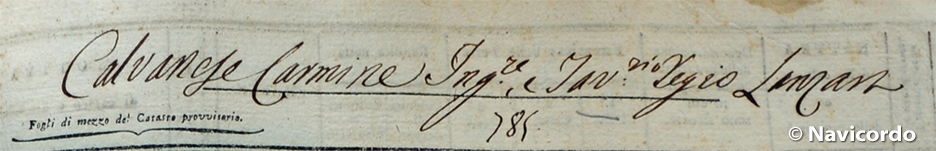 Calvanese Carmine Ing.re e Tav.rio Regio Lanzara
785
Fogli di mezzo del Catasto provvisorio.
© Navicordo